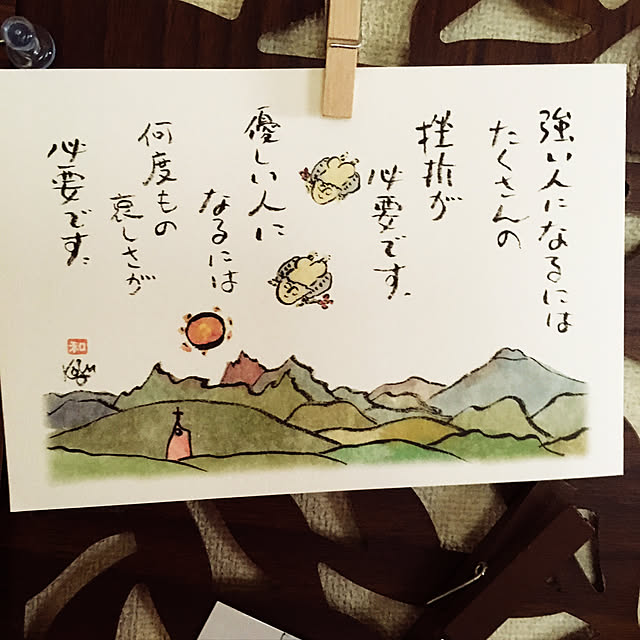 強い人になるには
たくさんの
挫折が
必要です。
優しい人に
なるには
何度もの
哀しさが
必要です。
和